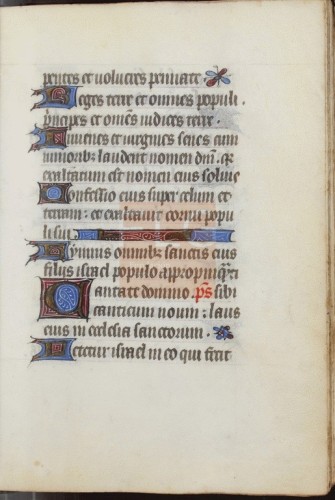 pentes et volucres pennate.
Reges terre et omnes populi.
principes et om̄es iudices terre.
Iuvenes et virgines senes cum
iunioribꝫ laudent nomen dn̄i. qꝛ
exaltatum est nomen eius solius
Confessio eius super celum et
terram: et exaltavit cornu popu
li sui.
Hymnus omnibꝫ sanctis eius
filiis israel populo appropinqᷓti
Cantate domino. p̄s sibi
canticum novum: laus
eius in ecclesia sanctorum.
Letetur israel in eo qui fecit